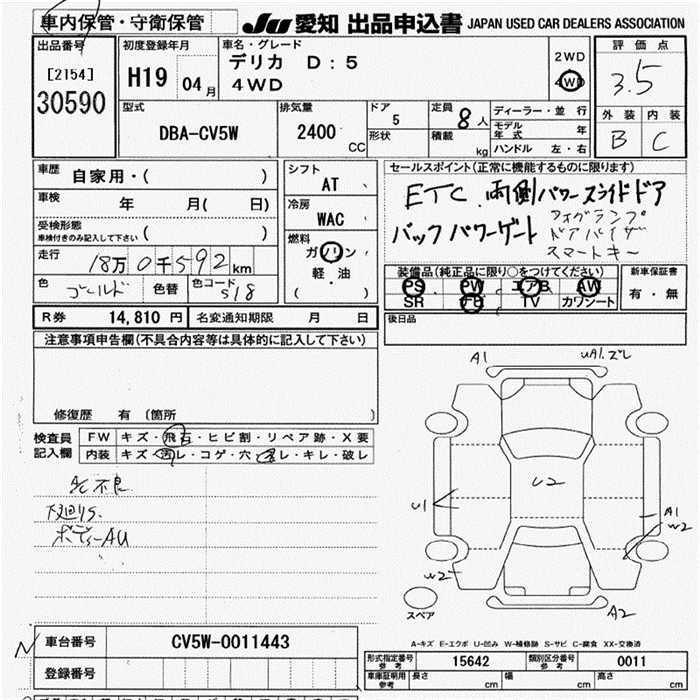 車内保管・守衛保管 JU 愛知 出品申込書 JAPAN USED CAR DEALERS ASSOCIATION
出品番号 初度登録年月 車名・グレード 評価点
[2154] H19 04 月 デリカ D:5 2WD
30590 4WD 4WD 3.5
型式 排気量 ドア 定員 ディーラー・並行 外装 内装
DBA-CV5W 2400 CC 5 8 人 モデル年式 B C
形状 積載 kg ハンドル 左・右
車歴 自家用・( ) シフト AT セールスポイント(正常に機能するものに限ります)
車検 年 月( 日) 冷房 WAC ETC.両側パワースライドドア
受検形態 バックパワーゲート フォグランプ
車検付きのみ記入して下さい ( ) 燃料 ドアバイザー
走行 18万0千592km ガソリン・ スマートキー
色 ゴールド 色替 色コード S18 軽・油 ( ) 装備品(純品品に限り○をつけてください) 新車保証書
PS PW エアB AW 有・無
SR ナビ TV カワシート
R券 14,810 円 名変通知期限 月 日 後日品
注意事項申告欄(不具合内容等は具体的に記入して下さい)
修復歴 有 (箇所
A1 UA1.ズレ
検査員記入欄 FW キズ・飛石・ヒビ割・リペア跡・X要
内装 キズ・汚レ・コゲ・穴・スレ・キレ・破レ
A/C不良
下廻りS.
ボディーAU
U2
U1 A1
W2
W2
スペア A2
A-キズ E-エクボ U-凹み W-補修跡 S-サビ C-腐食 XX-交換済
車台番号 CV5W-0011443
登録番号
形式指定番号 参考 15642 類別区分番号 参考 0011
車庫証明用 参考 長さ cm 幅 cm 高さ cm